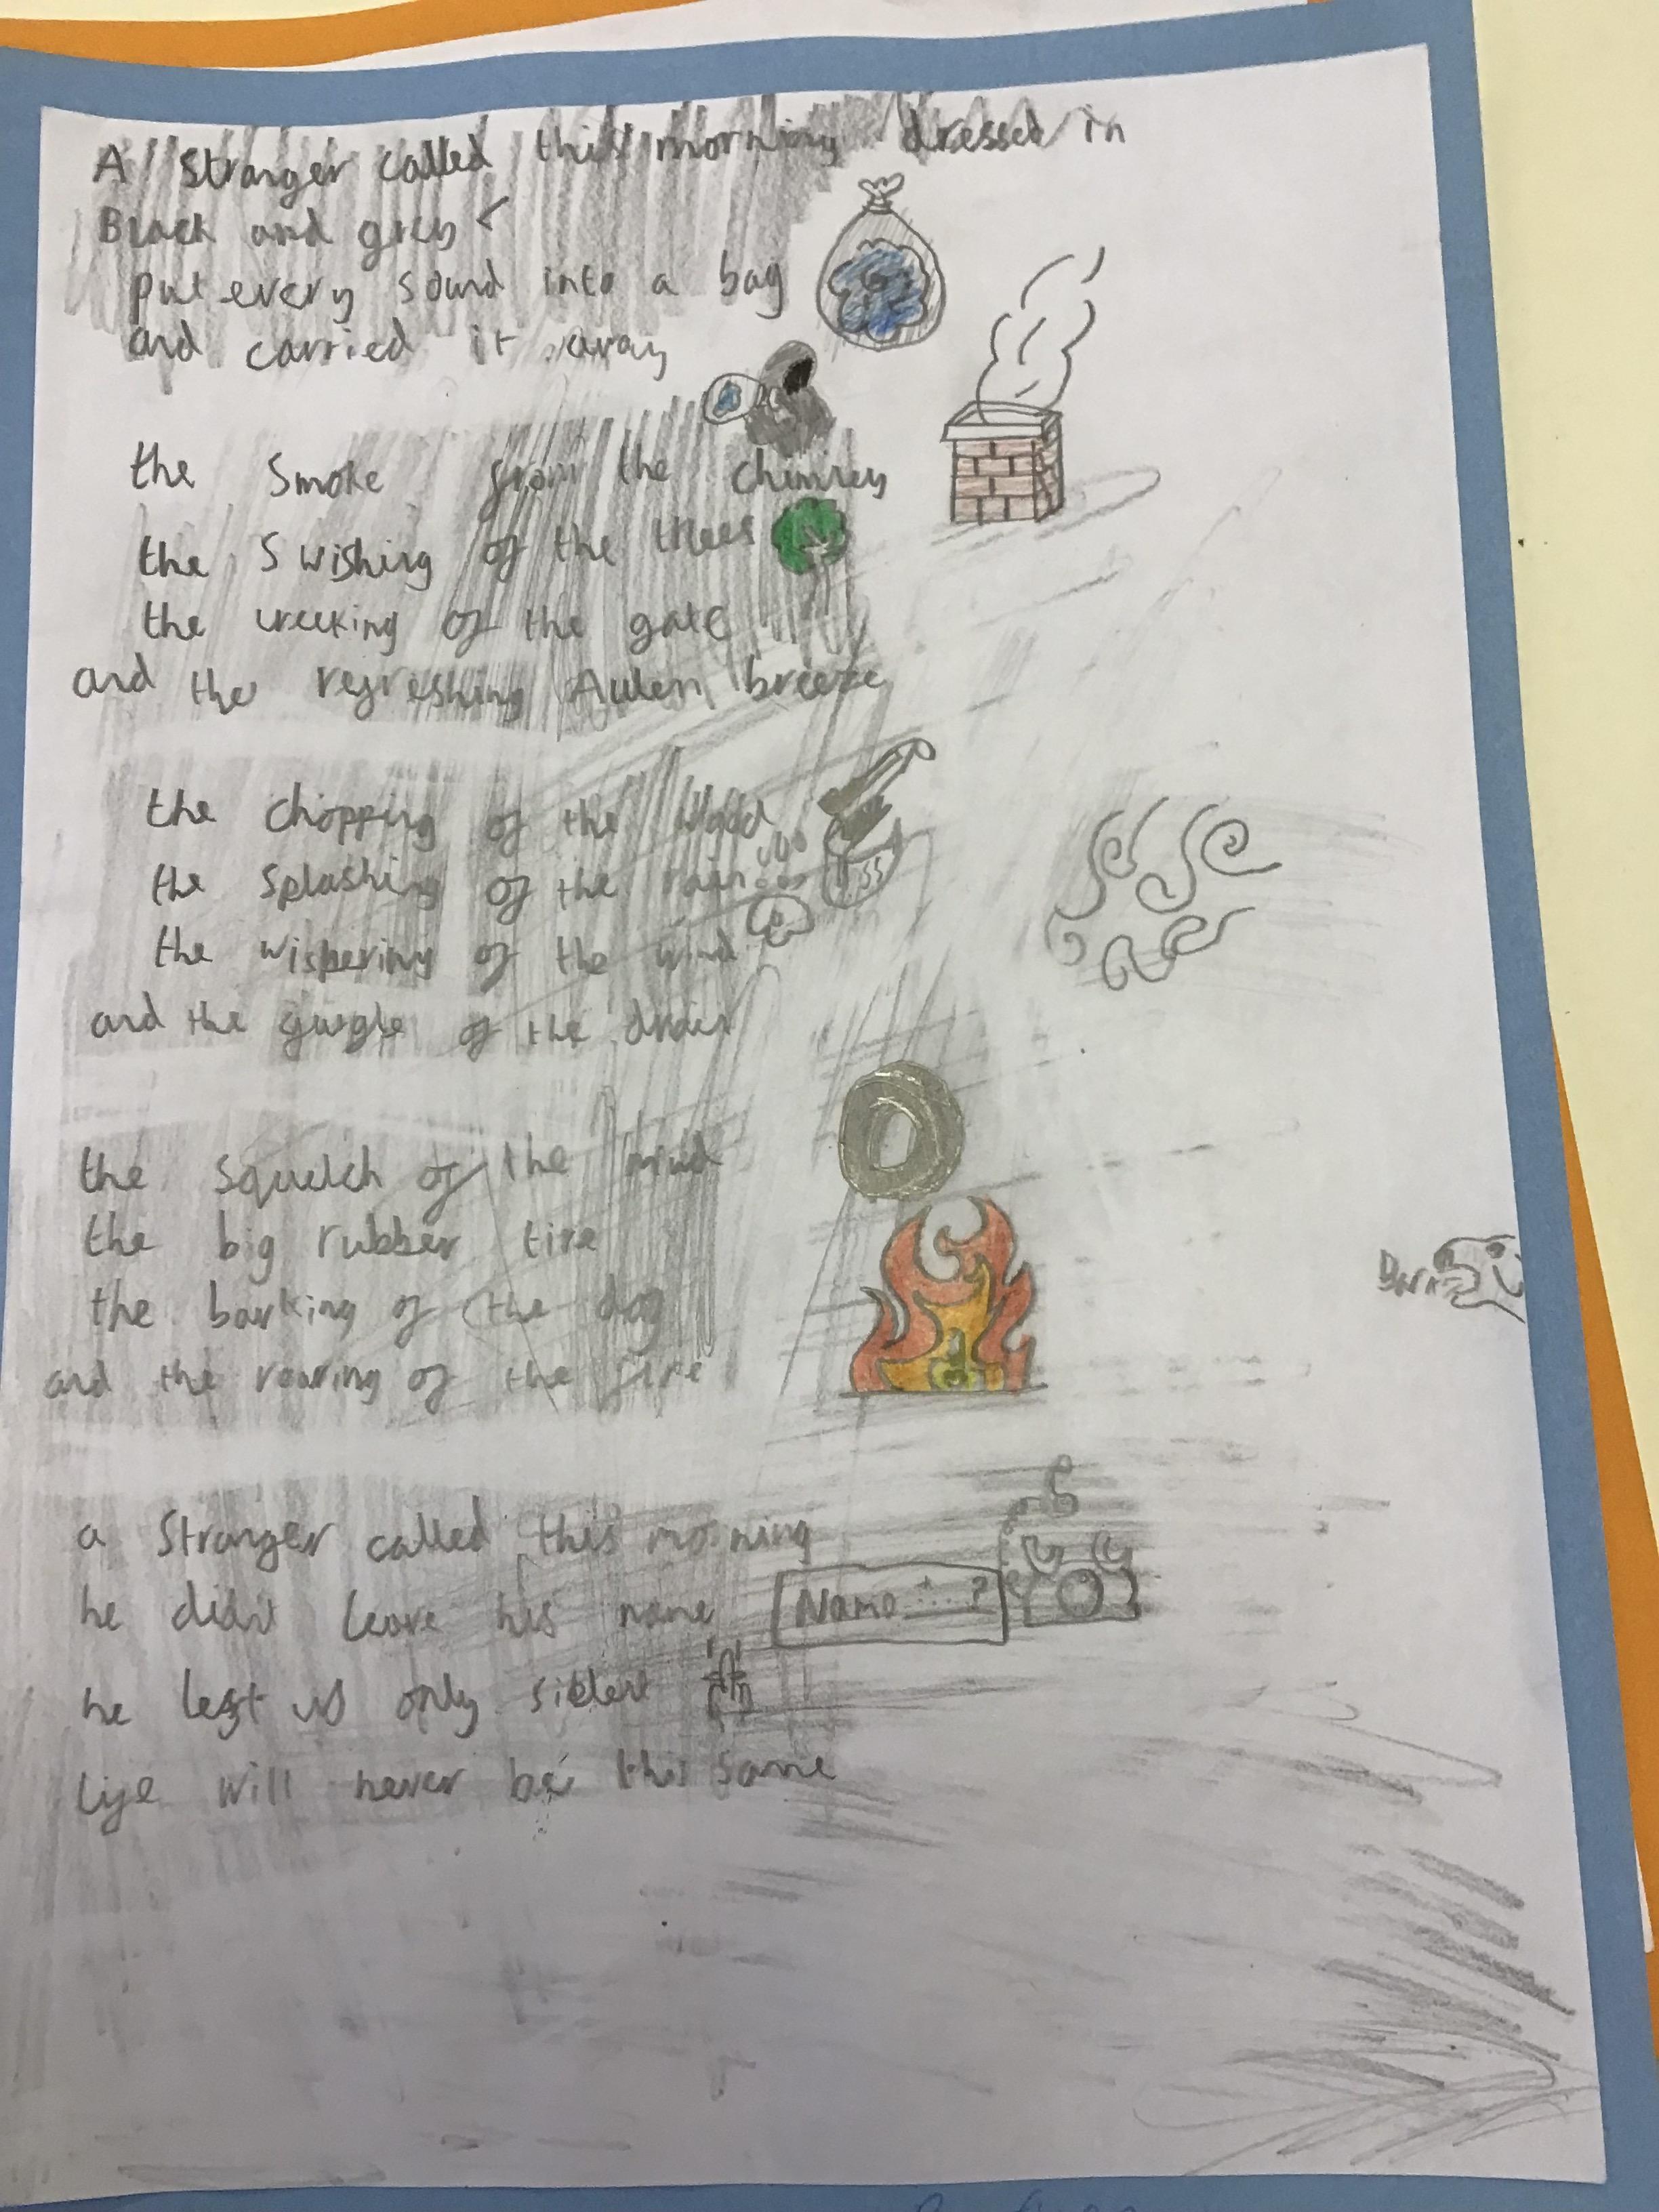 A Stranger called this morning dressed in
Black and grey
put every sound into a bag
and carried it away
the Smoke from the chimney
the Swishing of the trees
the creeking of the gate
and the refreshing Autem breeze
the chopping of the wood
the splashing of the rain
the wispering of the wind
and the gurgle of the drain
the Squelch of the mud
the big rubber tire
the barking of the dog
Bark
and the roaring of the fire
a Stranger called this morning
he didn't leave his name
Name...?
he left us only silent
life will never be this same